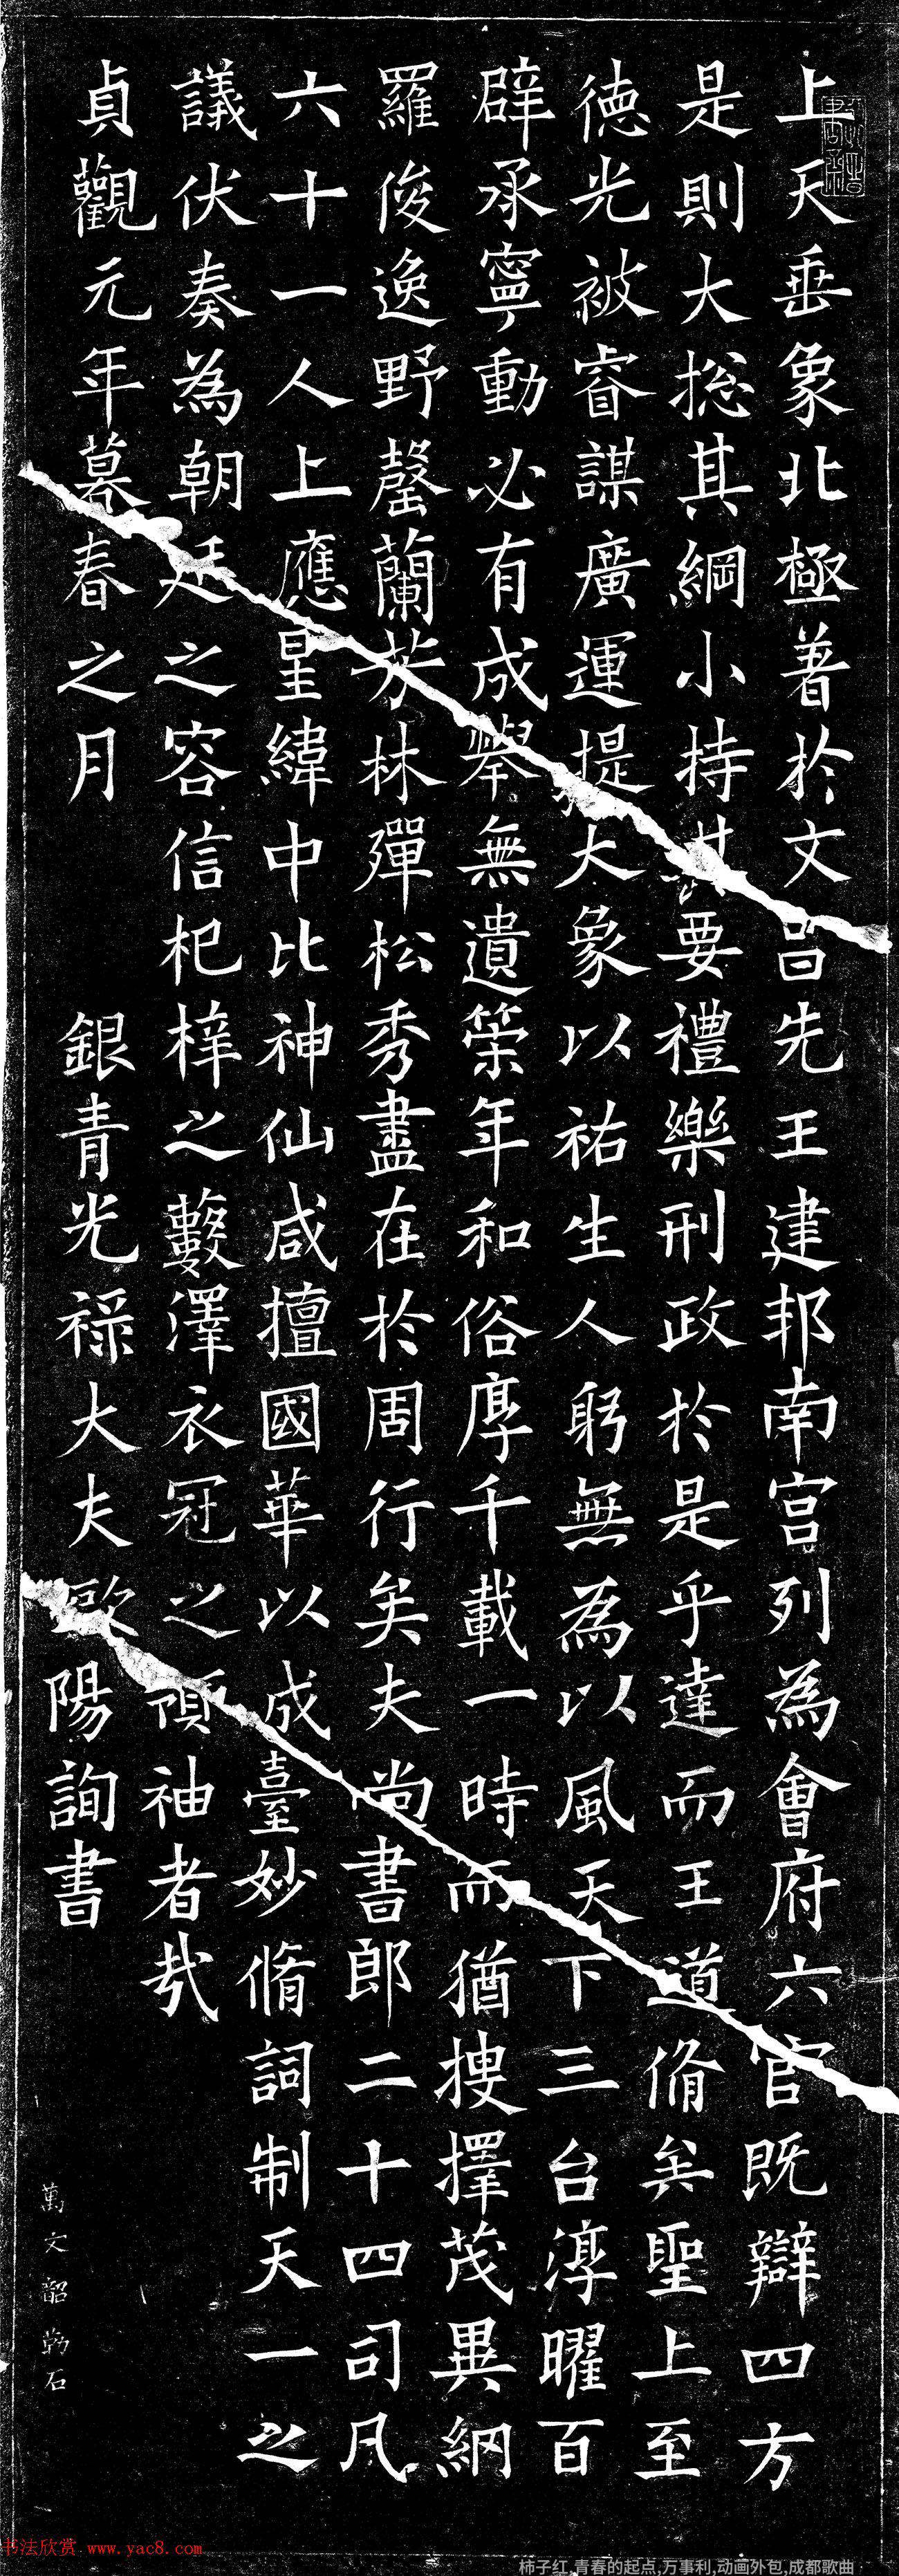 上天垂象北極著於文昌先王建邦南宮列為會府六官既辯四方
是則大揔其綱小持其要禮樂刑政於是乎達而王道脩矣聖上至
德光被睿謀廣運提大象以祐生人躬無為以風天下三台淳曜百
辟承寧動必有成舉無遺策年和俗厚千載一時而猶搜擇茂異網
羅俊逸野罄蘭芬林殫松秀盡在於周行矣夫尚書郎二十四司凡
六十一人上應星緯中比神仙咸擅國華以成臺妙脩詞制天一之
議伏奏為朝廷之容信杞梓之藪澤衣冠之領袖者哉
貞觀元年暮春之月 銀青光祿大夫歐陽詢書
萬文韶勒石
书法欣赏 www.yac8.com
柿子红,青春的起点,万事利,动画外包,成都歌曲